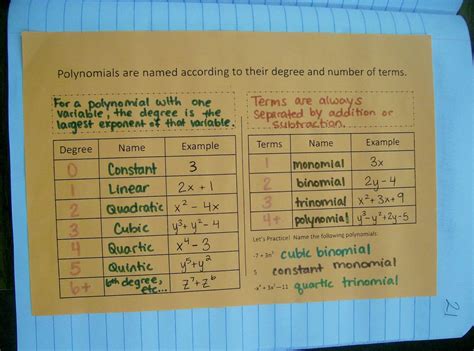 Polynomials are named according to their degree and number of terms.
For a polynomial with one
variable, the degree is the
largest exponent of that variable.
Degree Name Example
0 Constant 3
1 Linear 2x + 1
2 Quadratic x² - 4x
3 Cubic y³ + y² - 4
4 Quartic x⁴ - 3
5 Quintic y⁵ + y²
6+ 6th degree, etc... z⁷ + z⁶
Terms are always
separated by addition or
subtraction.
Terms Name Example
1 monomial 3x
2 binomial 2y - 4
3 trinomial x² + 3x + 9
4+ polynomial y³ - y² + 2y - 5
Let's Practice! Name the following polynomials.
cubic binomial
5 constant monomial
quartic trinomial
21